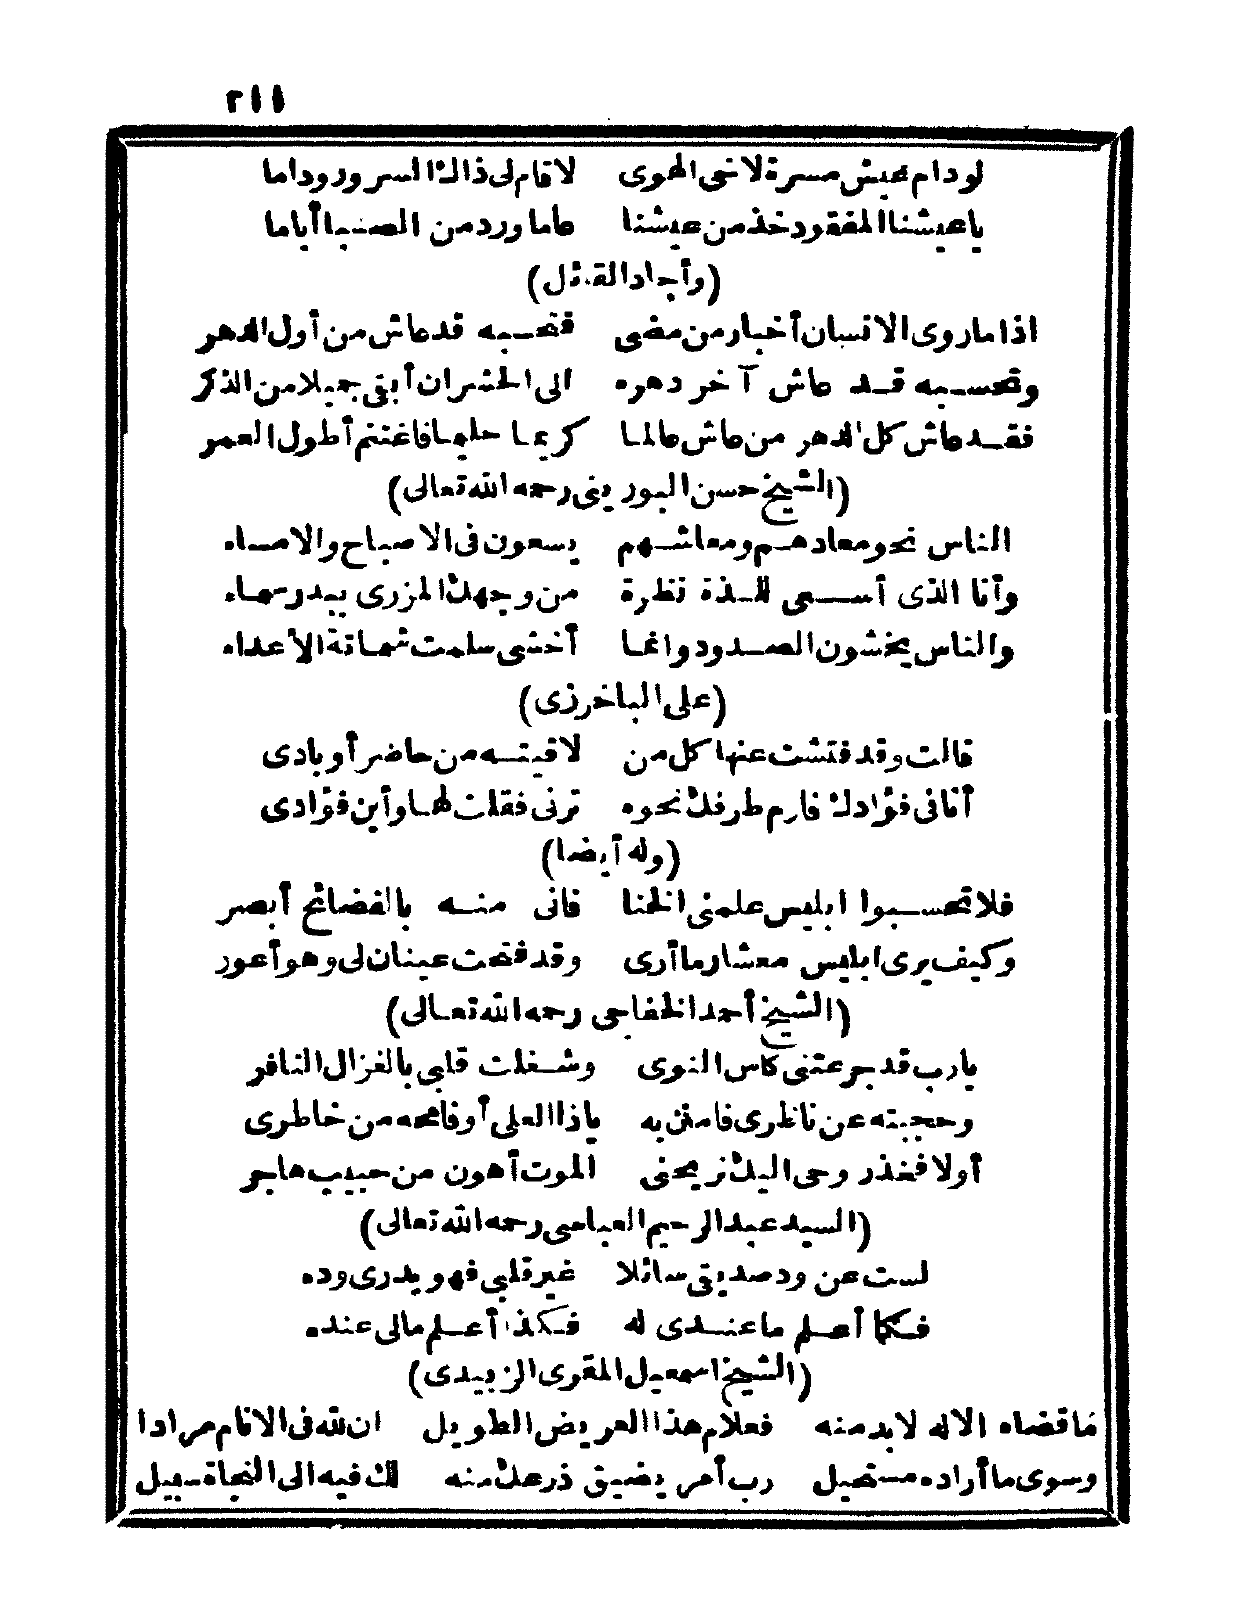 ٢١١
لو دام عيش مسرة لاخى الهوى لاقام لى ذاك السرور وداما
ياعيشنا المفقود خذ من عيشنا عاما ورد من الصبا أياما
(وأجاد القائل)
اذا ما روى الانسان أخبار من مضى فتحسبه قد عاش من أول الدهر
وتحسبه قد عاش آخر دهره الى الحشر ان أبقى جميلا من الذكر
فقد عاش كل الدهر من عاش عالما كريما حليما فاغتنم أطول العمر
(الشيخ حسن البورينى رحمه الله تعالى)
الناس نحو معادهم ومعاشهم يسعون فى الاصباح والامساء
وأنا الذى أسعى للذة نظرة من وجهك المزرى ببدر سماء
والناس يخشون الصدود وانما أخشى سلمت شماتة الأعداء
(على الباخرزى)
قالت وقد فتشت عنها كل من لاقيته من حاضر أو بادى
أنا فى فؤادك فارم طرفك نحوه ترنى فقلت لها وأين فؤادى
(وله أيضا)
فلا تحسبوا ابليس علمنى الخنا فانى منه بالفضائح أبصر
وكيف يرى ابليس معشار ما أرى وقد فتحت عينان لى وهو أعور
(الشيخ أحمد الخفاجى رحمه الله تعالى)
يارب قد جرعتنى كاس النوى وشغلت قلبى بالغزال النافر
وحجبته عن ناظرى فامنن به ياذا العلى أو فامحه من خاطرى
أولا فخذ روحى اليك تريحنى الموت أهون من حبيب هاجر
(السيد عبد الرحيم العباسى رحمه الله تعالى)
لست عن ود صديقى سائلا غير قلبى فهو يدرى وده
فكما أعلم ما عندى له فكذا أعلم مالى عنده
(الشيخ اسمعيل المقرى الزبيدى)
ما قضاه الاله لابد منه فعلام هذا العريض الطويل ان لله فى الانام مرادا
وسوى ما أراده مستحيل رب أمر يضيق ذرعك منه لك فيه الى النجاة سبيل